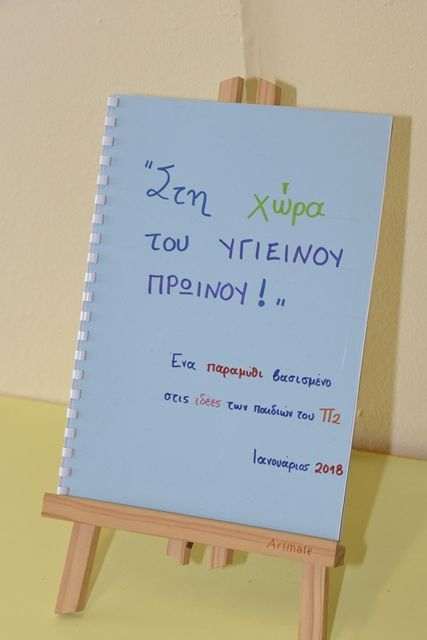 "Στη χώρα
του ΥΓΙΕΙΝΟΥ
ΠΡΩΙΝΟΥ!"
Ένα παραμύθι βασισμένο
στις ιδέες των παιδιών του Π2
Ιανουάριος 2018
Artmate